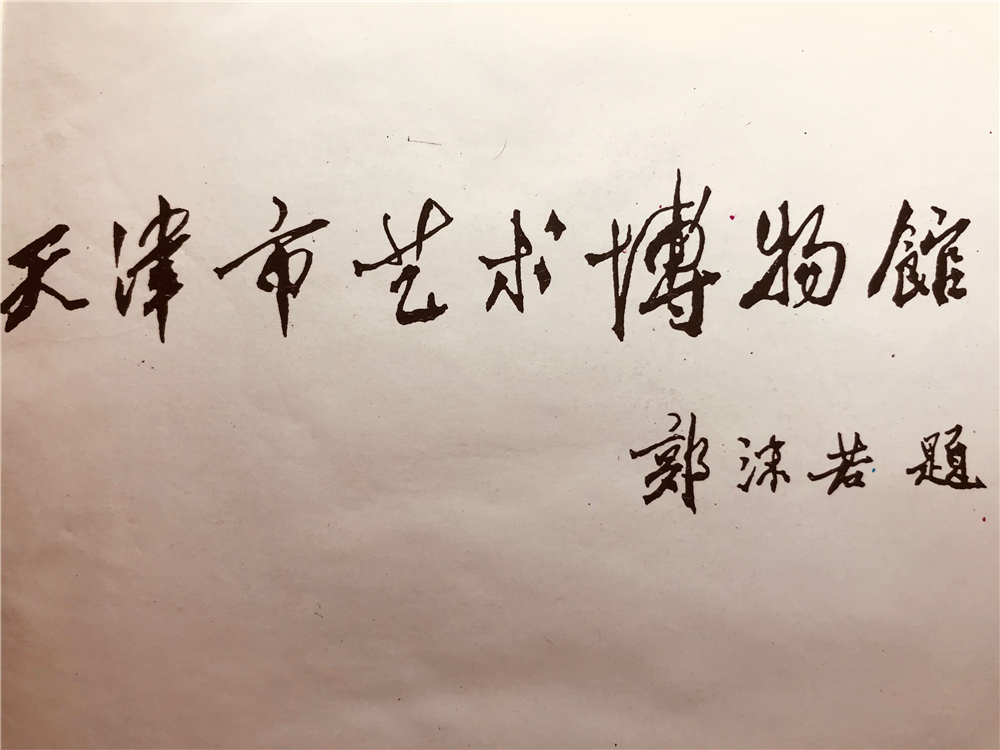 天津市艺术博物館
郭沫若题